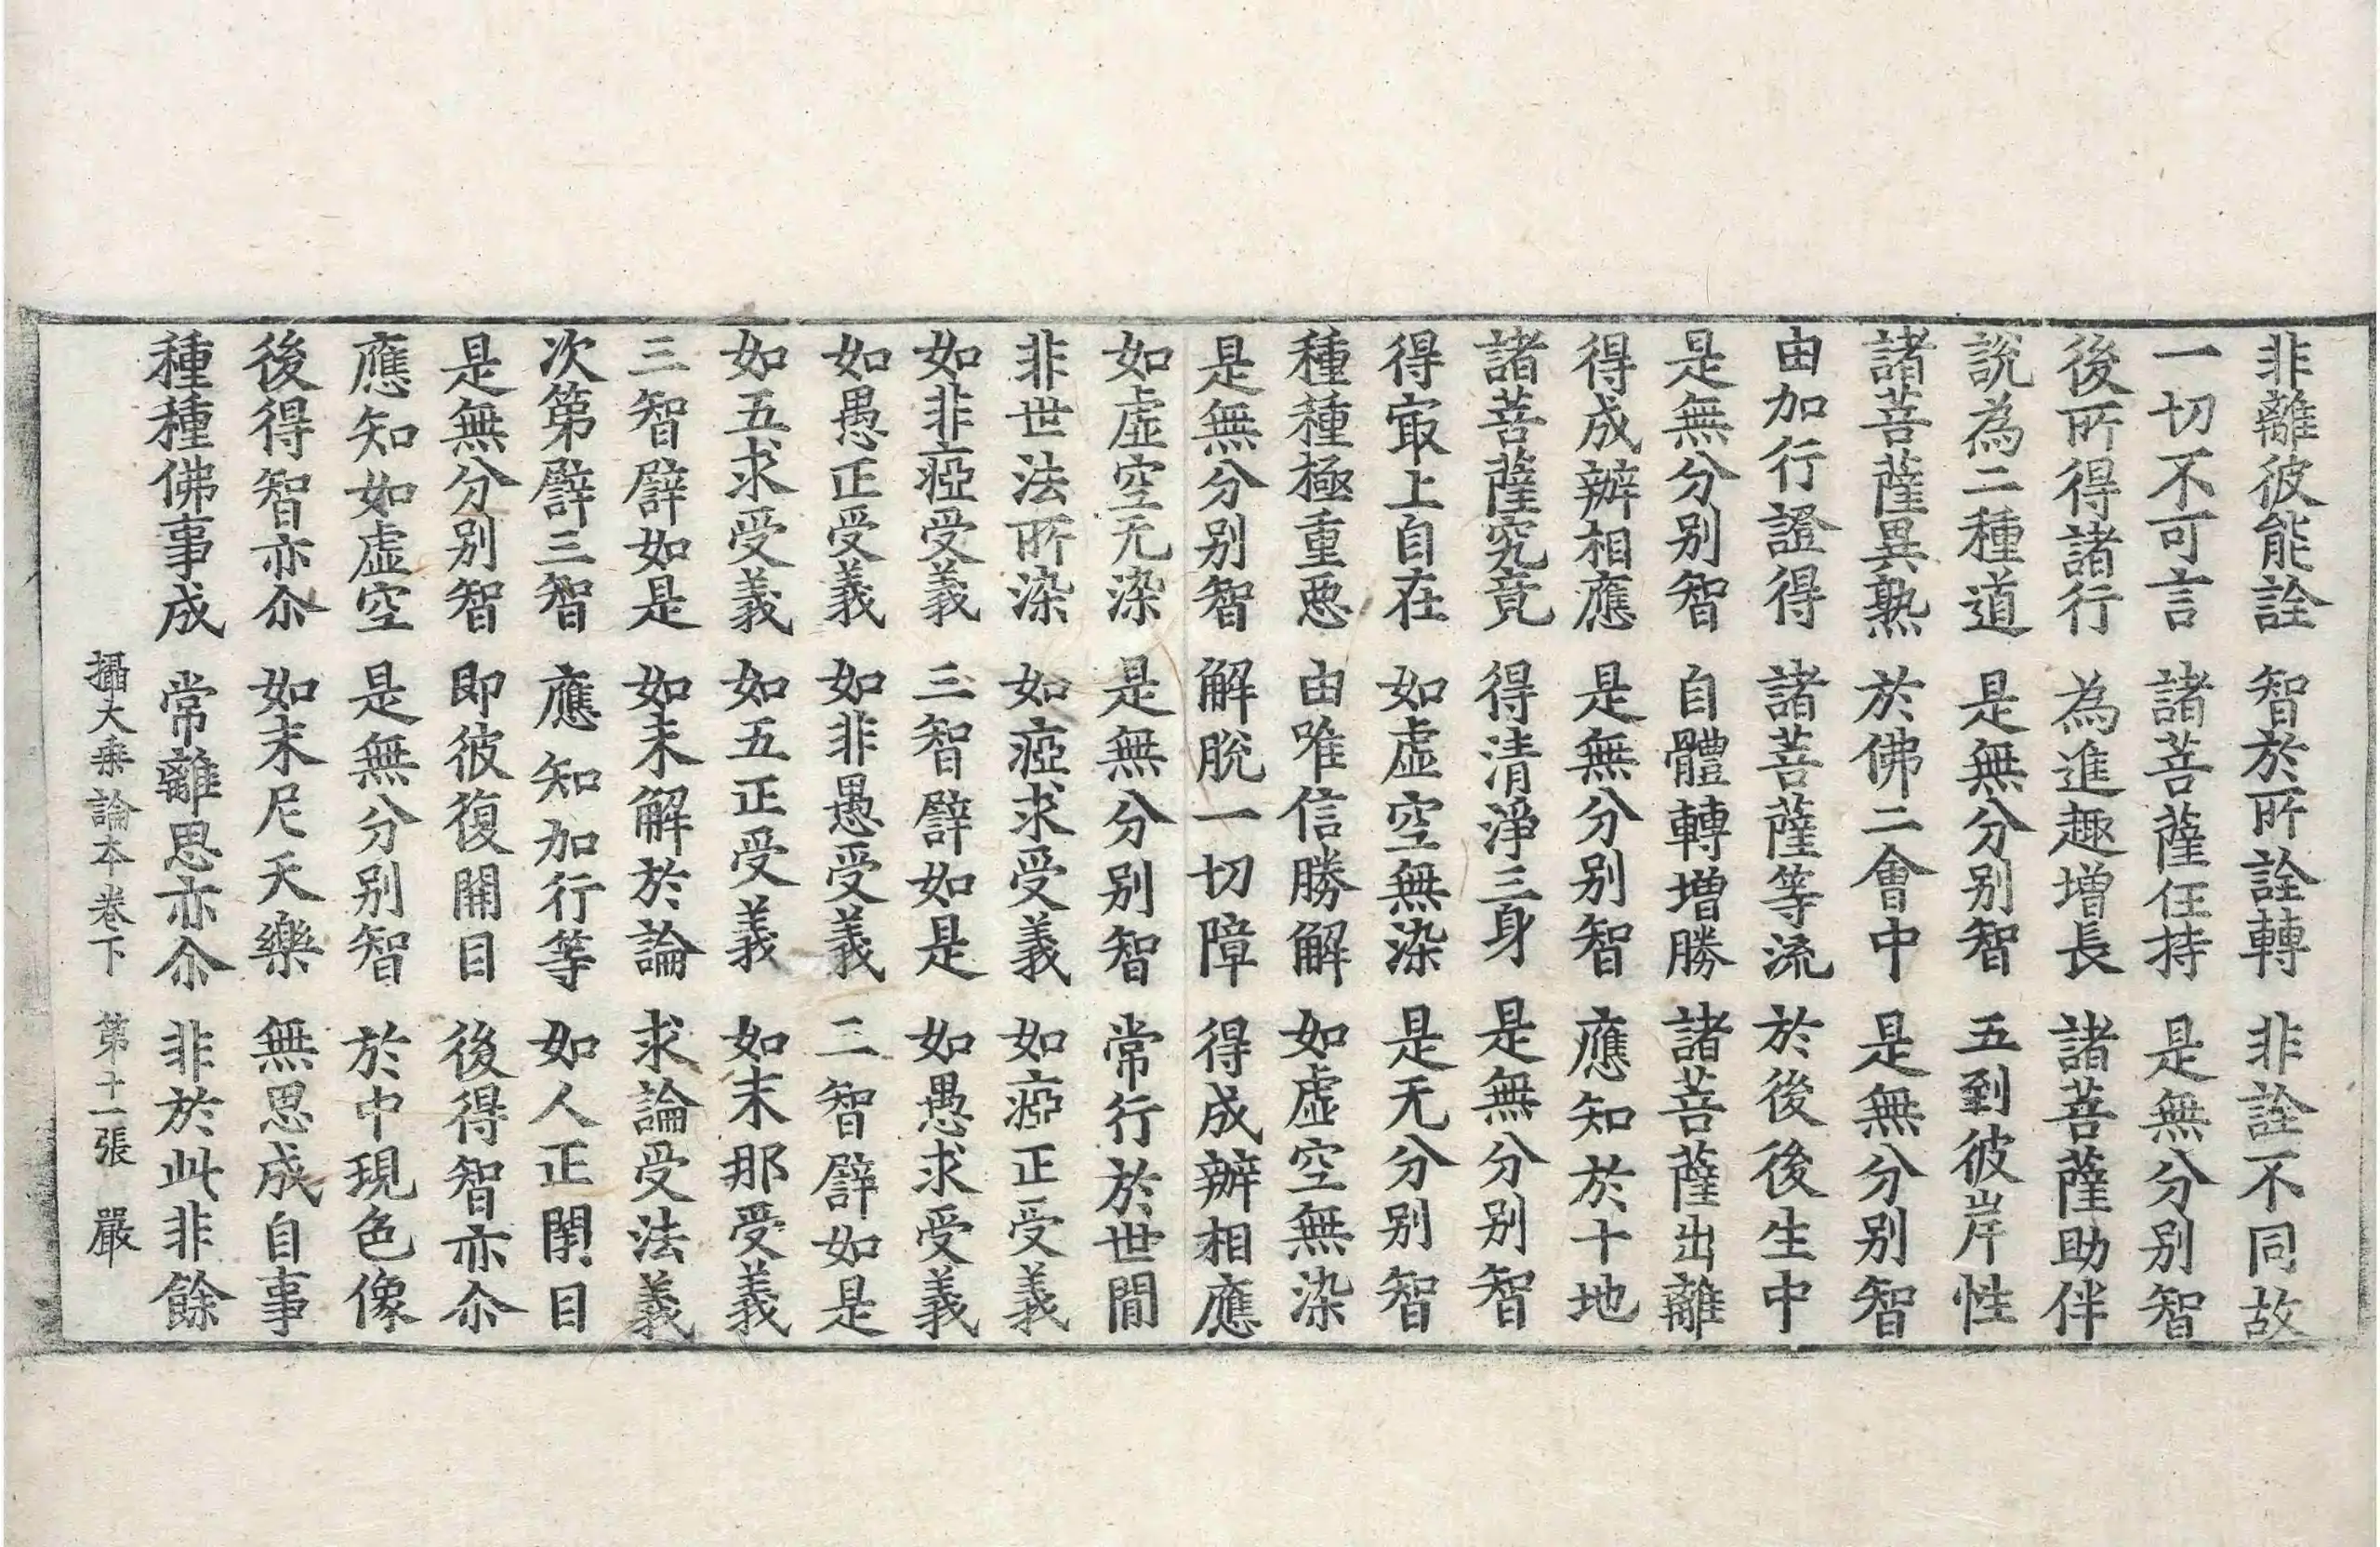 非離彼能詮　智於所詮轉　非詮不同故
一切不可言　諸菩薩任持　是無分別智
後所得諸行　為進趣增長　諸菩薩助伴
說為二種道　是無分別智　五到彼岸性
諸菩薩異熟　於佛二會中　是無分別智
由加行證得　諸菩薩等流　於後後生中
是無分別智　自體轉增勝　諸菩薩出離
得成辦相應　是無分別智　應知於十地
諸菩薩究竟　得清淨三身　是無分別智
得㝡上自在　如虛空無染　是无分別智
種種極重惡　由唯信勝解　如虛空無染
是無分別智　解脫一切障　得成辦相應
如虛空无染　是無分別智　常行於世間
非世法所染　如瘂求受義　如瘂正受義
如非瘂受義　三智譬如是　如愚求受義
如愚正受義　如非愚受義　二智譬如是
如五求受義　如五正受義　如末那受義
三智譬如是　如未解於論　求論受法義
次第譬三智　應知加行等　如人正閉目
是無分別智　即彼復開目　後得智亦尒
應知如虛空　是無分別智　於中現色像
後得智亦尒　如末尼天樂　無思成自事
種種佛事成　常離思亦尒　非於此非餘
攝大乗論本卷下　第十一張　嚴